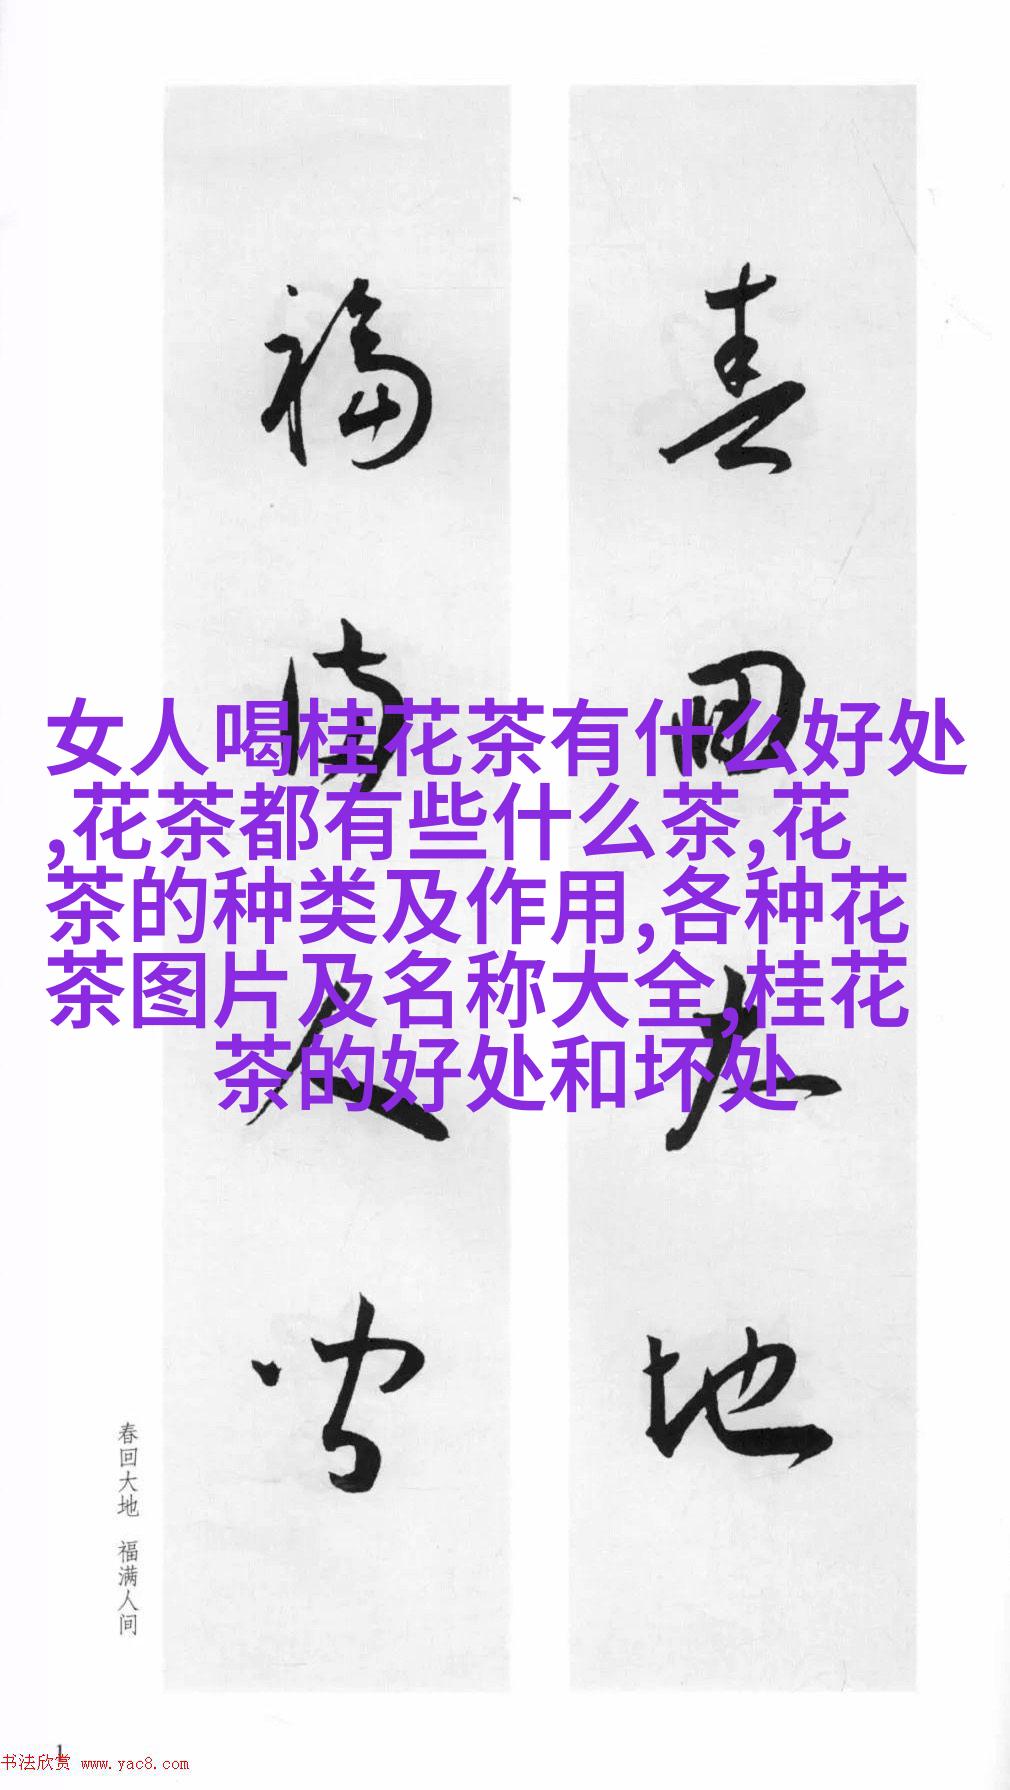 春回大地
福满人间
女人喝桂花茶有什么好处
,花茶都有些什么茶,花
茶的种类及作用,各种花
茶图片及名称大全,桂花
茶的好处和坏处
春回大地 福满人间
1
书法欣赏 www.yac8.com